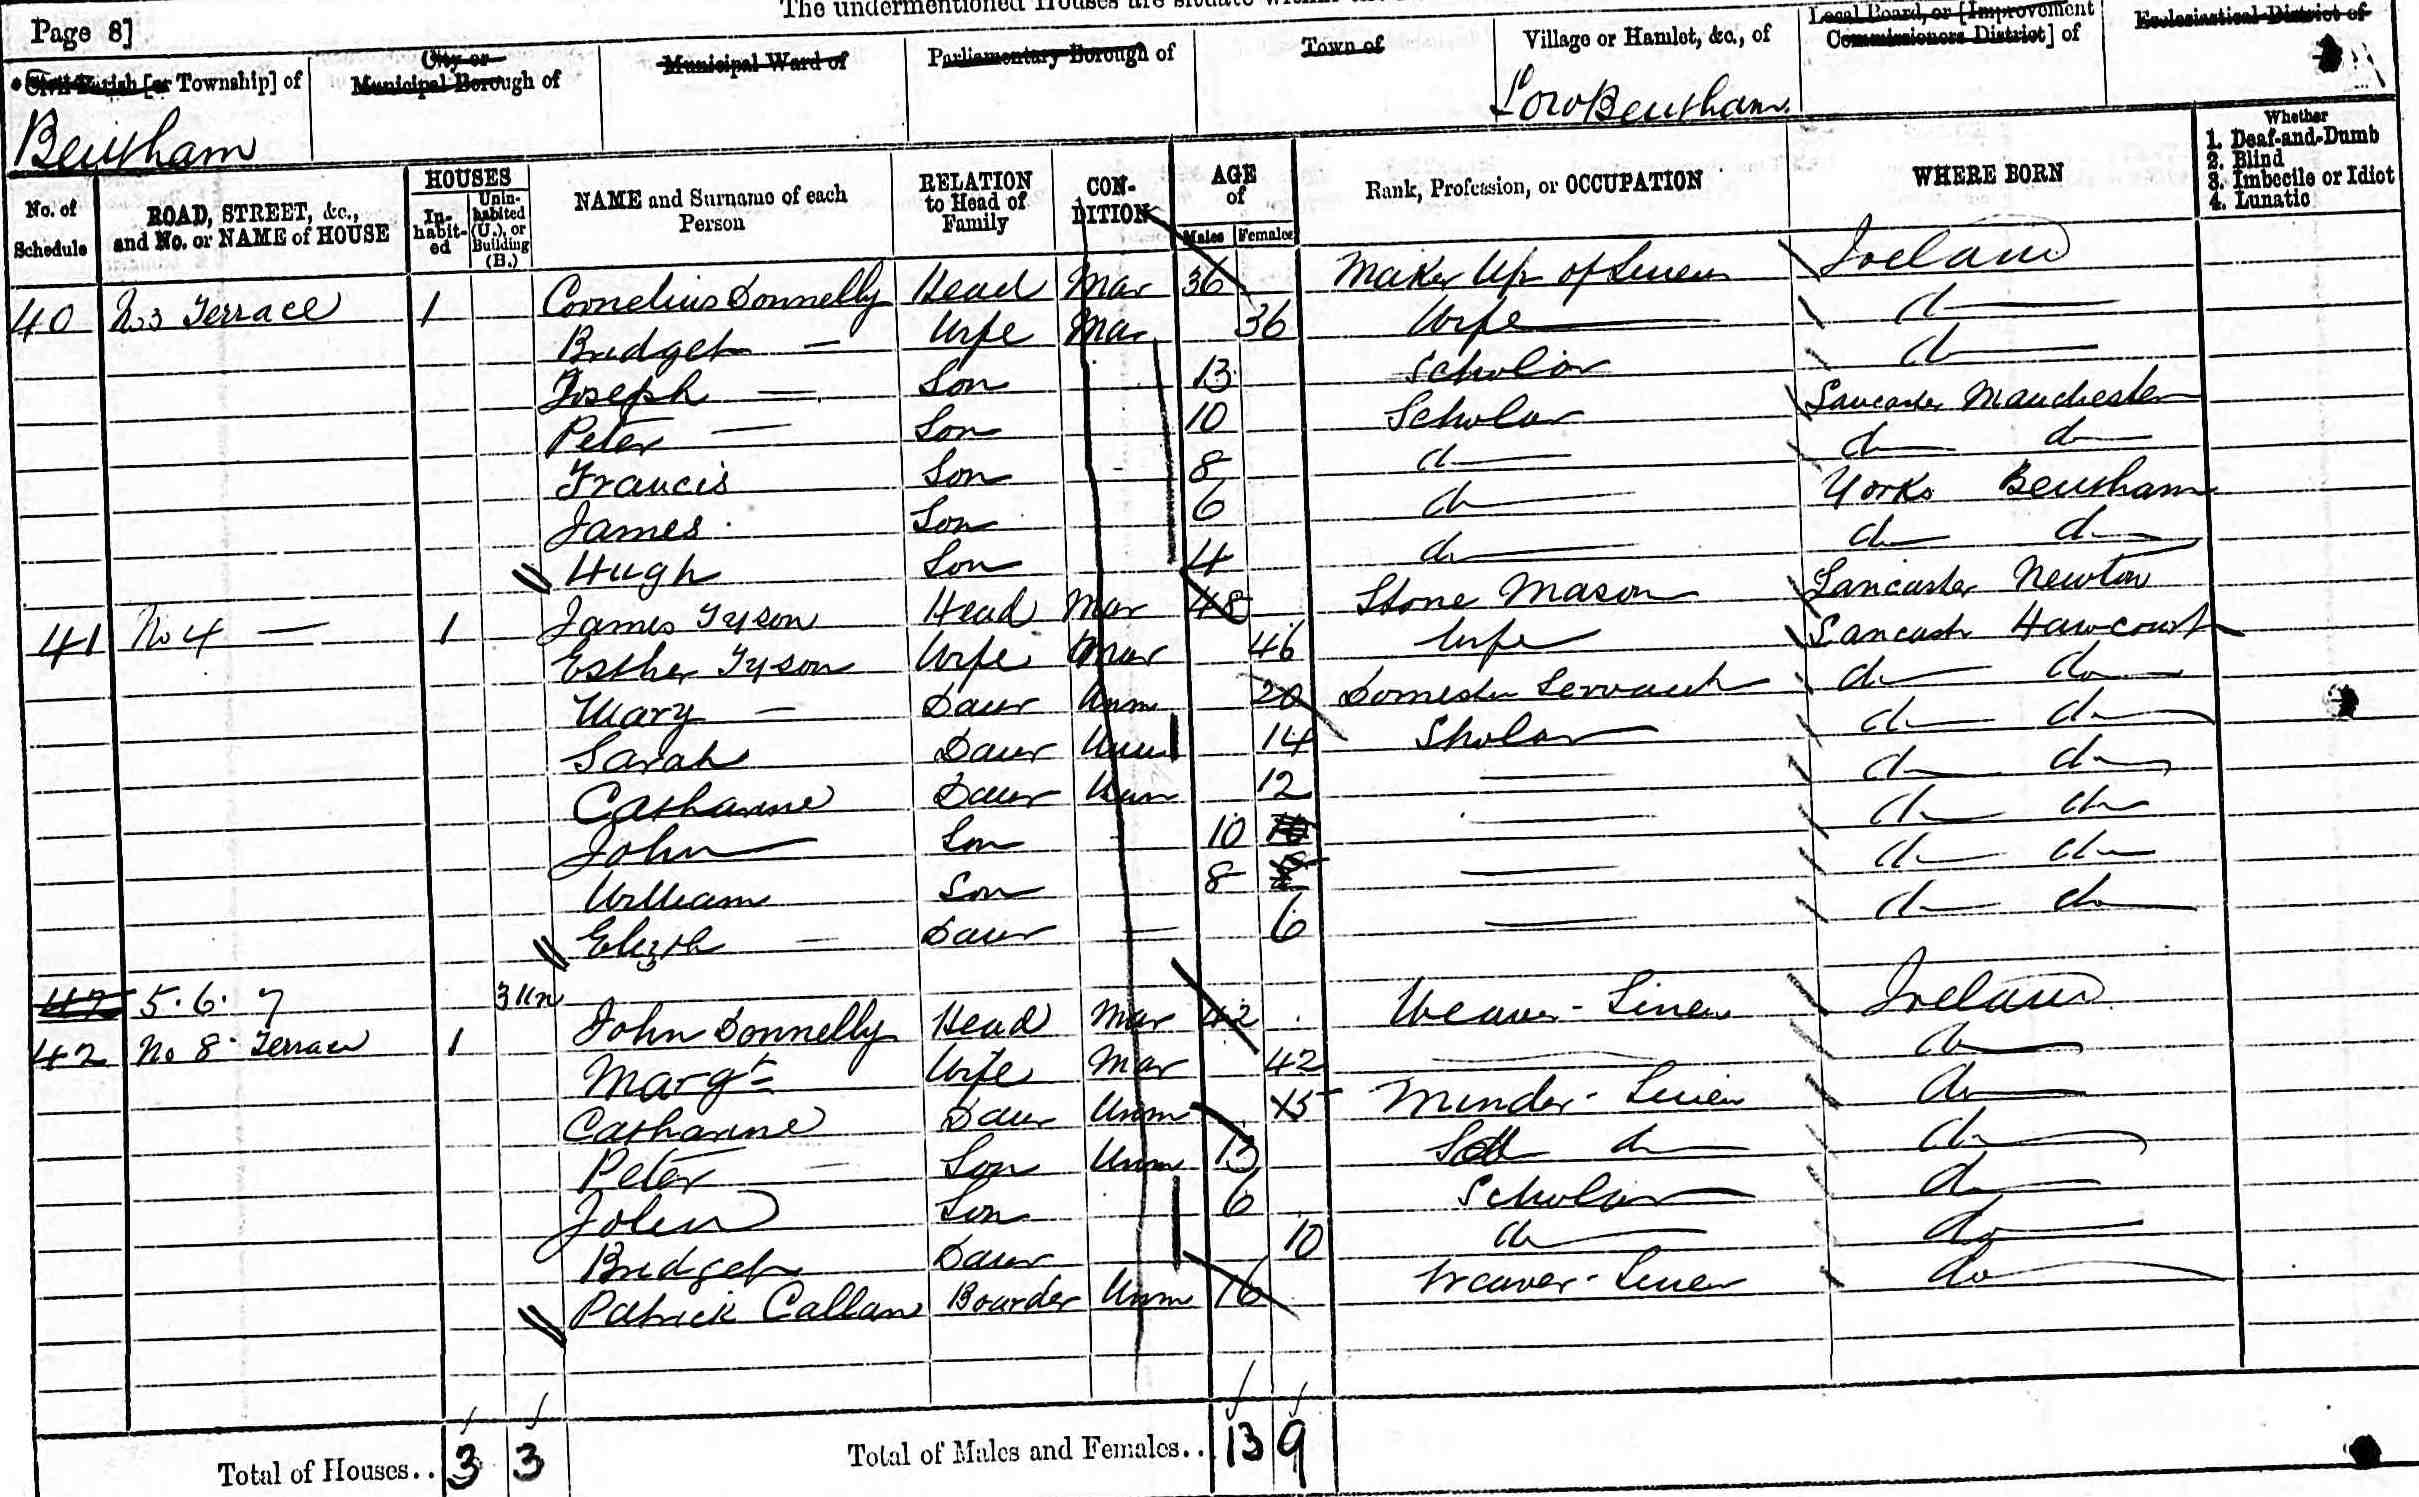 The undermentioned Houses are situate
Page 8]
Civil Parish [or Township] of
City or Municipal Borough of
Municipal Ward of
Parliamentary Borough of
Town of
Village or Hamlet, &c., of
Local Board, or [Improvement Commissioners District] of
Ecclesiastical District of
Bentham
Low Bentham
No. of Schedule
ROAD, STREET, &c., and No. or NAME of HOUSE
HOUSES
In-habit-ed
Unin-habited (U.), or Building (B.)
NAME and Surname of each Person
RELATION to Head of Family
CON-DITION
AGE of
Males Females
Rank, Profession, or OCCUPATION
WHERE BORN
Whether
1. Deaf-and-Dumb
2. Blind
3. Imbecile or Idiot
4. Lunatic
40 No 3 Terrace 1 Cornelius Donnelly Head Mar 36 Maker Up of Linen Ireland
Bridget — Wife Mar 36 Wife do
Joseph — Son 13 Scholar do
Peter — Son 10 Scholar Lancaster Manchester
Francis Son 8 do do do
James Son 6 do Yorks Bentham
Hugh Son 4 do do do
41 No 4 — 1 James Tyson Head Mar 48 Stone Mason Lancaster Newton
Esther Tyson Wife Mar 46 Wife Lancash Hawcourt
Mary — Daur Unm 20 Domestic Servant do do
Sarah Daur Unm 14 Sholar do do
Catharine Daur Unm 12 — do do
John Son 10 — do do
William Son 8 — do do
Elizth — Daur — 6 — do do
42 5. 6. 7 3 Un
42 No 8 Terrace 1 John Donnelly Head Mar 42 Weaver - Linen Ireland
Margt Wife Mar 42 — do
Catharine Daur Unm 15 Minder - Linen do
Peter — Son Unm 13 do do
John Son 6 Scholar do
Bridget Daur 10 do do
Patrick Callan Boarder Unm 16 Weaver - Linen do
Total of Houses.. 3 3 Total of Males and Females.. 13 9